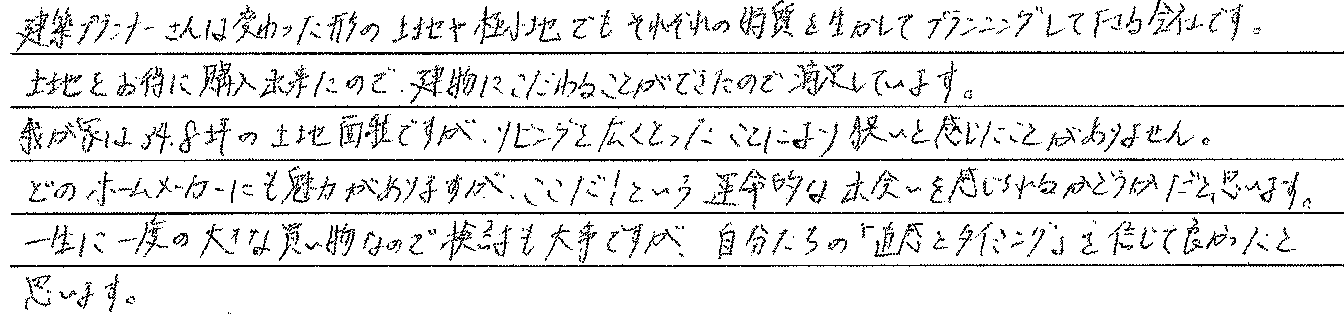 建築プランナーさんは変わった形の土地や極小地でもそれぞれの特質を生かしてプランニングして下さる会社です。
土地をお得に購入出来たので、建物にこだわることができたので満足しています。
我が家は34.8坪の土地面積ですが、リビングを広くとったことにより狭いと感じたことがありません。
どのホームメーカーにも魅力がありますが、ここだ!という運命的な出会いを感じられるかどうかだと思います。
一生に一度の大きな買い物なので検討も大事ですが、自分たちの「直感とタイミング」を信じて良かったと
思います。